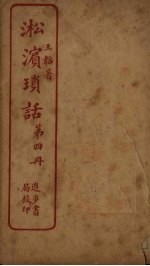 淞濱瑣話
王韜著
第四冊
進步書
局校印